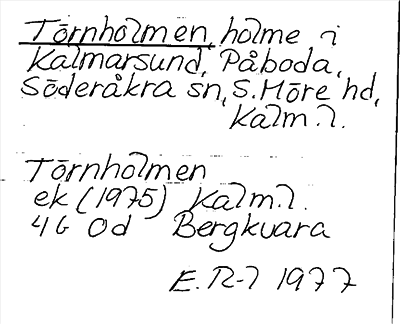 Törnholmen, holme i
Kalmarsund, Påboda,
Söderåkra sn, S. Möre hd,
Kalm. l.
Törnholmen
ek (1975) Kalm. l.
4 G 0d Bergkvara
E. R-l 1977